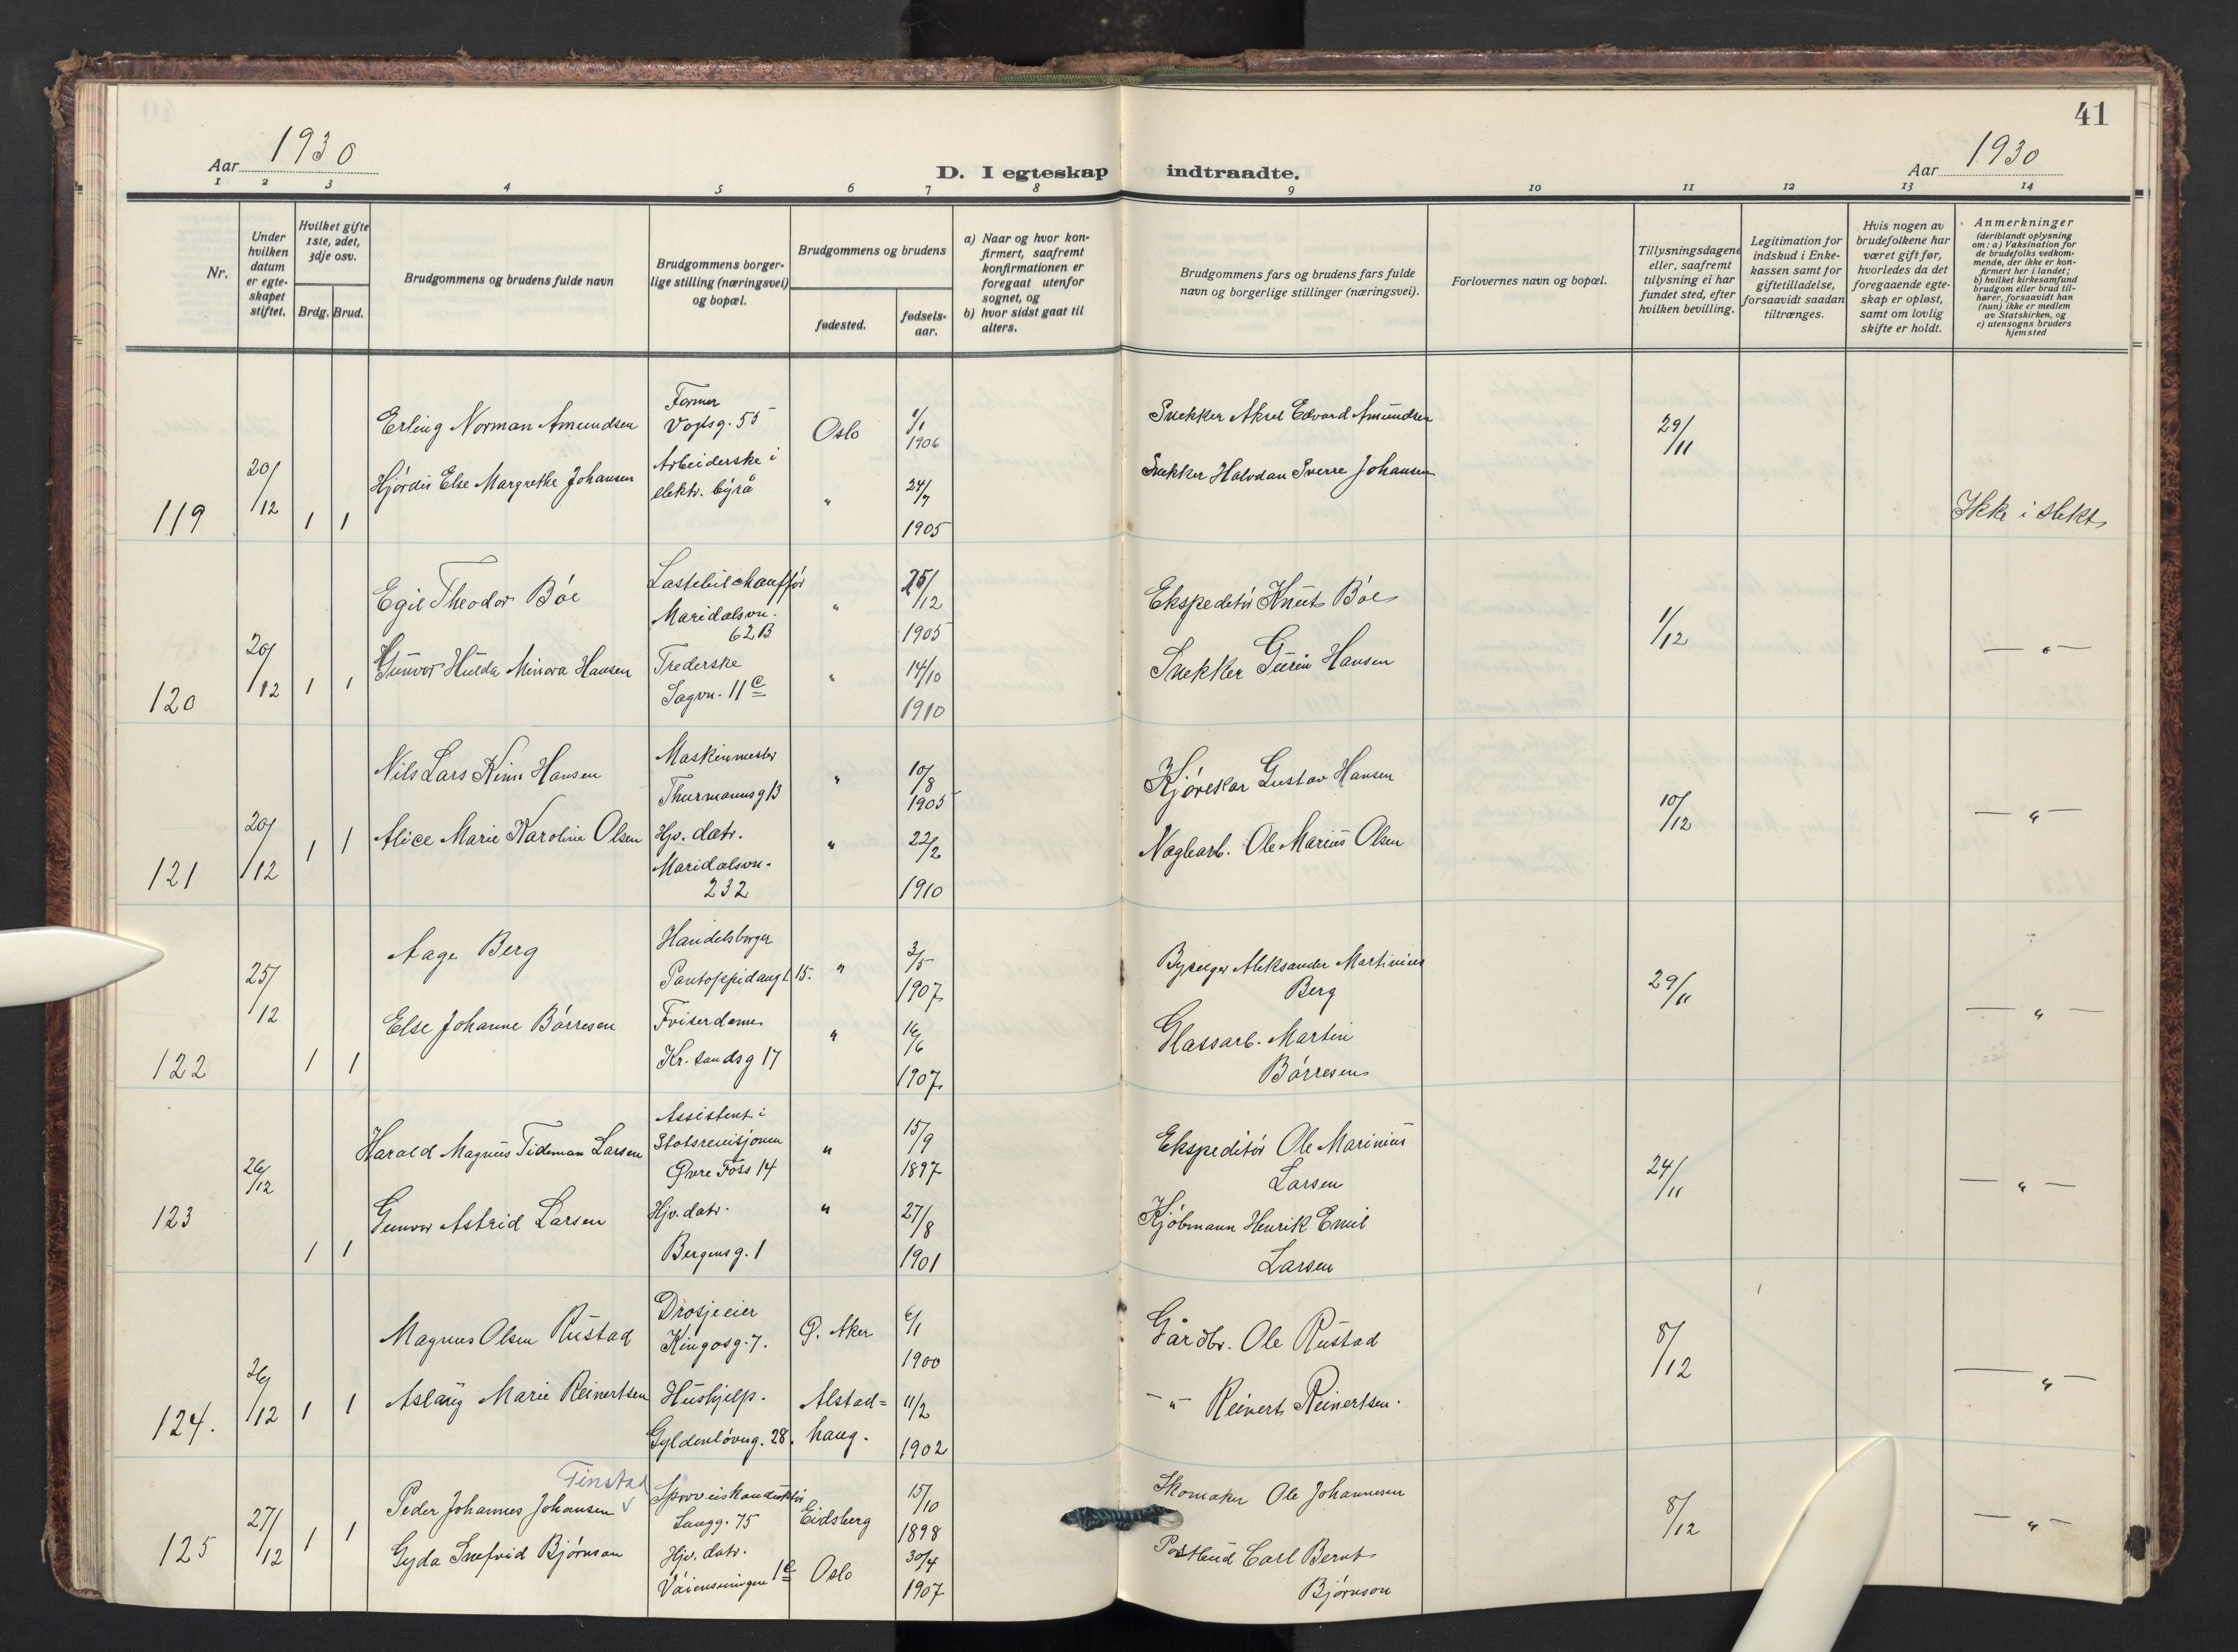 41
Aar 1930
D. I egteskap indtraadte.
Aar 1930
1 2 3 4 5 6 7 8 9 10 11 12 13 14
Nr.
Under hvilken datum er egteskapet stiftet.
Hvilket gifte 1ste, 2det, 3dje osv.
Brdg. Brud.
Brudgommens og brudens fulde navn
Brudgommens borgerlige stilling (næringsvei) og bopæl.
Brudgommens og brudens
fødested.
fødselsaar.
a) Naar og hvor konfirmert, saafremt konfirmationen er foregaat utenfor sognet, og
b) hvor sidst gaat til alters.
Brudgommens fars og brudens fars fulde navn og borgerlige stillinger (næringsvei).
Forlovernes navn og bopæl.
Tillysningsdagene eller, saafremt tillysning ei har fundet sted, efter hvilken bevilling.
Legitimation for indskud i Enkekassen samt for giftetilladelse, forsaavidt saadan tiltrænges.
Hvis nogen av brudefolkene har været gift før, hvorledes da det foregaaende egteskap er opløst, samt om lovlig skifte er holdt.
Anmerkninger
(deriblandt oplysning om: a) Vaksination for de brudefolks vedkommende, der ikke er konfirmert her i landet; b) hvilket kirkesamfund brudgom eller brud tilhører, forsaavidt han (hun) ikke er medlem av Statskirken, og c) utensogns bruders hjemsted
119 20/12 1 1
Erling Norman Amundsen
Former
Vogtsg. 55
Oslo
1/1 1906
Snekker Aksel Edvard Amundsen
29/11
Hjørdis Else Margrethe Johansen
Arbeiderske i
elektr. byrå
"
24/7 1905
Snekker Halvdan Sverre Johansen
Ikke i slekt
120 20/12 1 1
Egil Theodor Bøe
Lastebilchauffør
Maridalsvn.
62 B
"
25/12 1905
Ekspeditør Knut Bøe
1/12
Gunvor Hulda Minora Hansen
Trederske
Sagvn. 11 C
"
14/10 1910
Snekker Hansen
— " —
121 20/12 1 1
Nils Lars Kinn Hansen
Maskinmester
Thurmannsg 13
"
10/8 1905
Kjørekar Gustav Hansen
10/12
Alice Marie Karoline Olsen
Hjv. datr.
Maridalsvn.
232
"
22/2 1910
Naglearb. Ole Marius Olsen
— " —
122 25/12 1 1
Aage Berg
Handelsborger
Pantoppidansg 15.
"
3/5 1907
Aleksander Martinius
Berg
29/11
Else Johanne Børresen
Friserdame
Kr. sandsg 17
"
16/6 1907
Glassarb. Martin
Børresen
— " —
123 26/12 1 1
Harald Magnus Tideman Larsen
Assistent i
Statsrevisjonen
Øvre Foss 14
"
15/9 1897
Ekspeditør Ole Marinius
Larsen
24/11
Gunvor Astrid Larsen
Hjv. datr.
Bergensg. 1
"
27/8 1901
Kjøbmann Henrik Emil
Larsen
— " —
124. 26/12 1 1
Magnus Olsen Rustad
Drosjeeier
Kingosg. 7.
Ø. Aker
6/1 1900
Gårdbr. Ole Rustad
8/12
Aslaug Marie Reinertsen
Hushjelp.
Gyldenløvesg. 28.
Alstad=
haug.
11/2 1902
— " — Reinert Reinertsen.
— " —
125 27/12 1 1
Tinstad
Peder Johannes Johansen v
Sporveiskonduktør
Langg. 75
Eidsberg
15/10 1898
Skomaker Ole Johannesen
8/12
Gyda Snefrid Bjørnson
Hjv. datr.
1 C
Oslo
30/4 1907
Postbud Carl Bernt
Bjørnson
— " —